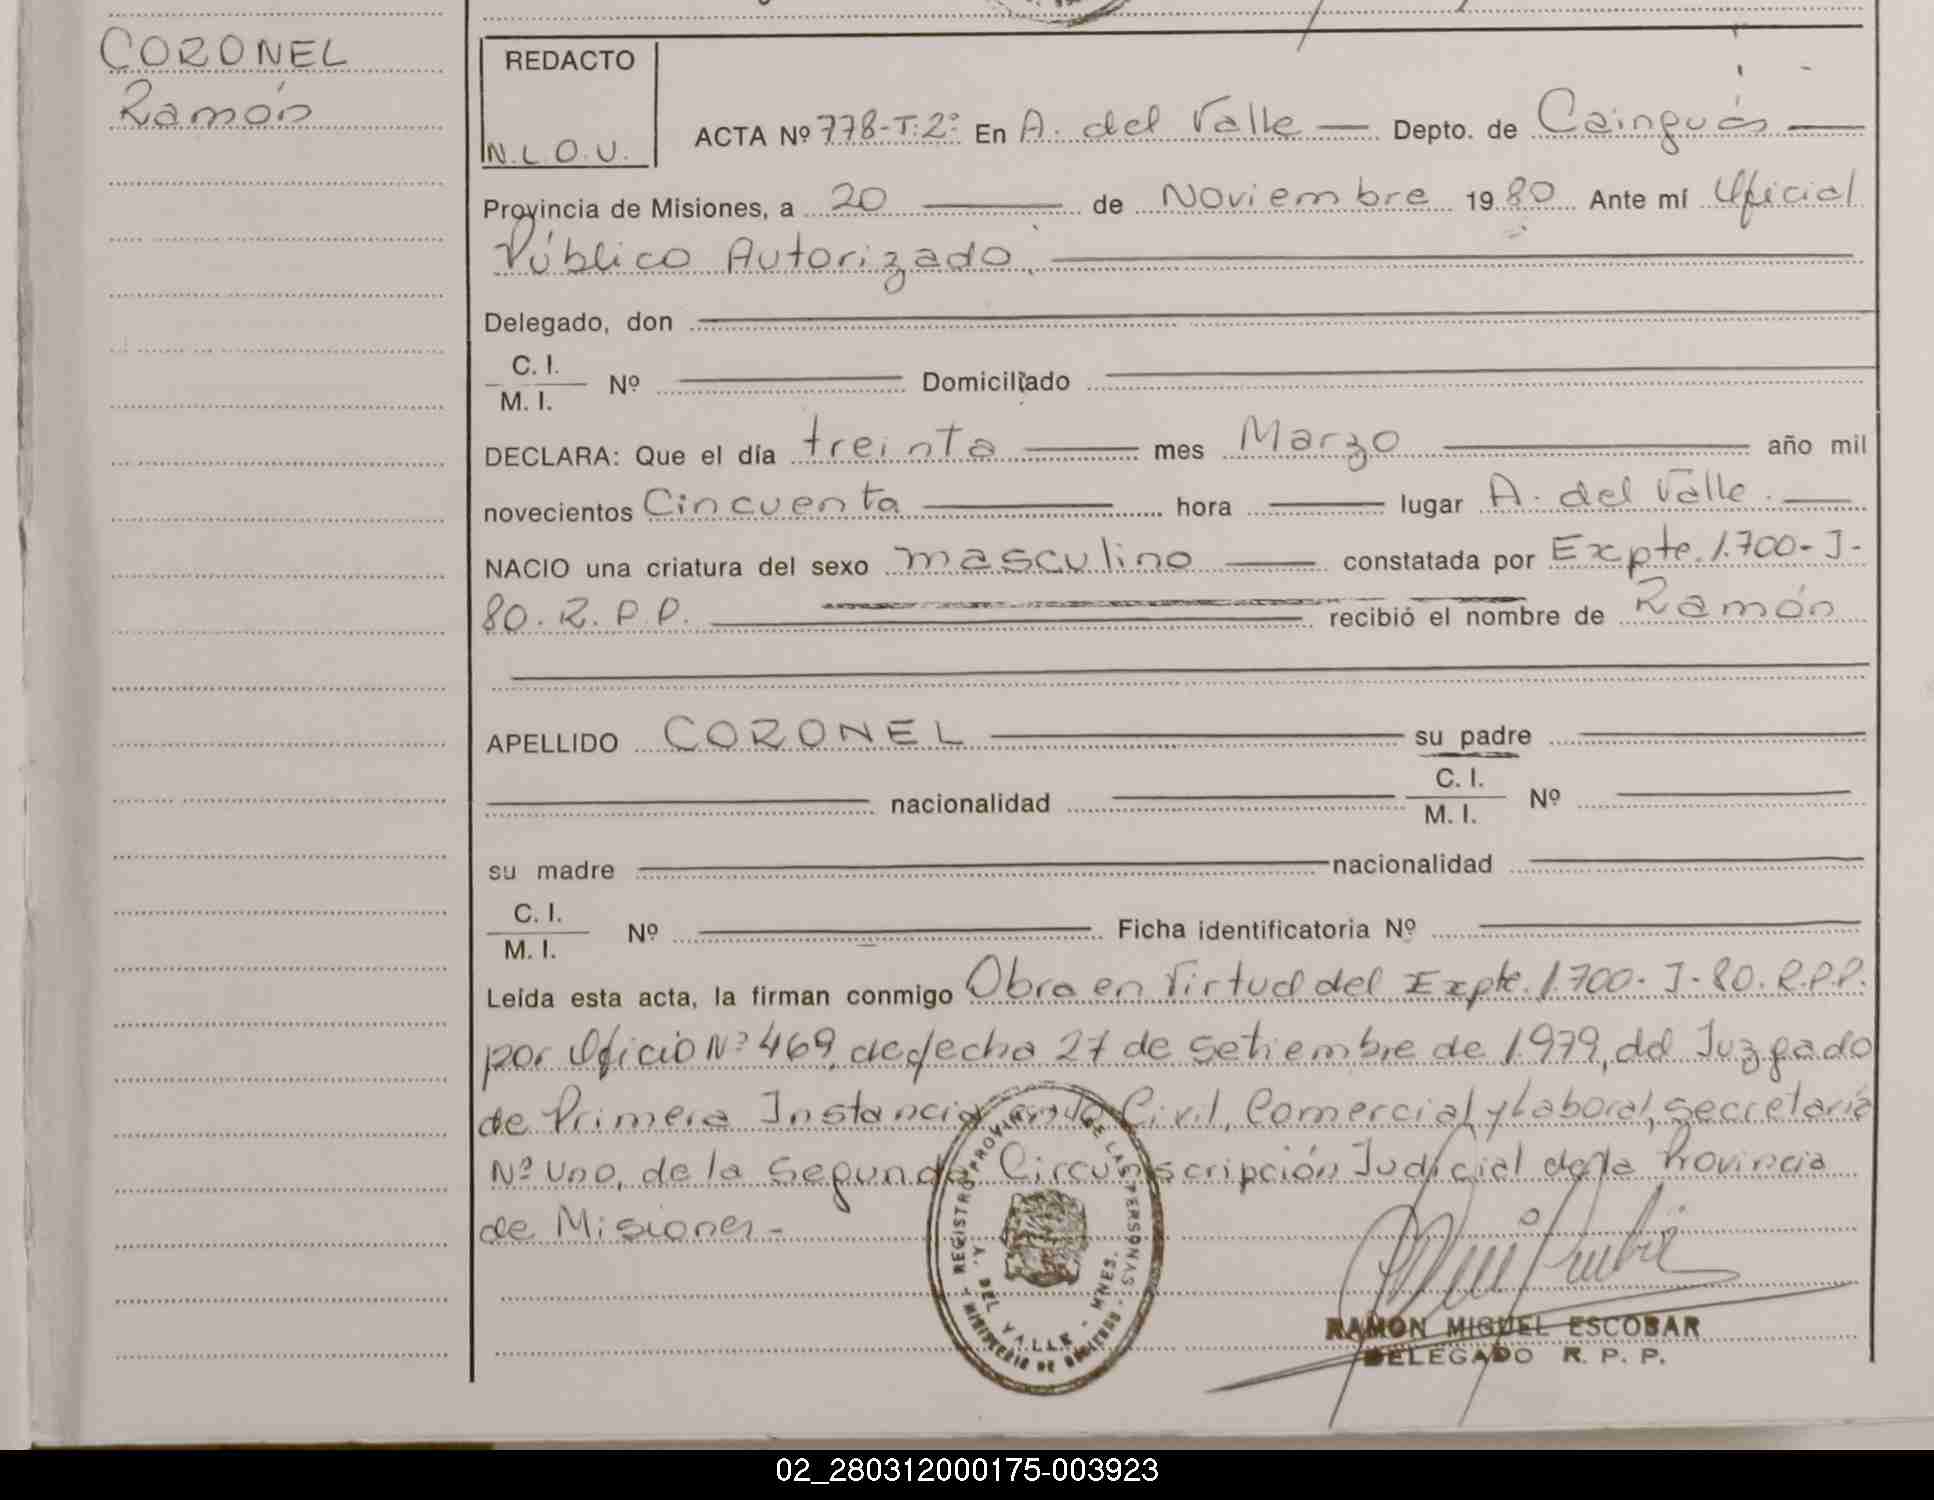 CORONEL
Ramón
REDACTO
N.L.O.U.
ACTA Nº 778-T:2º En A. del Valle Depto. de Cainguás
Provincia de Misiones, a 20 de Noviembre 1980 Ante mí Oficial
Público Autorizado.
Delegado, don
C. I.
M. I. Nº Domiciliado
DECLARA: Que el día treinta mes Marzo año mil
novecientos Cincuenta hora lugar A. del Valle.
NACIO una criatura del sexo masculino constatada por Expte. 1.700-J-
80. R. P. P. recibió el nombre de Ramón
APELLIDO CORONEL su padre
nacionalidad C. I.
M. I. Nº
su madre nacionalidad
C. I.
M. I. Nº Ficha identificatoria Nº
Leída esta acta, la firman conmigo Obra en Virtud del Expte. 1.700-J-80. R.P.P.
por Oficio Nº 469, de fecha 27 de setiembre de 1.979, del Juzgado
de Primera Instancia en lo Civil, Comercial y Laboral, secretaria
Nº Uno, de la Segunda Circunscripción Judicial de la Provincia
de Misiones-
REGISTRO PROVINCIAL DE LAS PERSONAS
A. DEL VALLE - MNES.
MINISTERIO DE GOBIERNO
RAMON MIGUEL ESCOBAR
DELEGADO R. P. P.
02_280312000175-003923